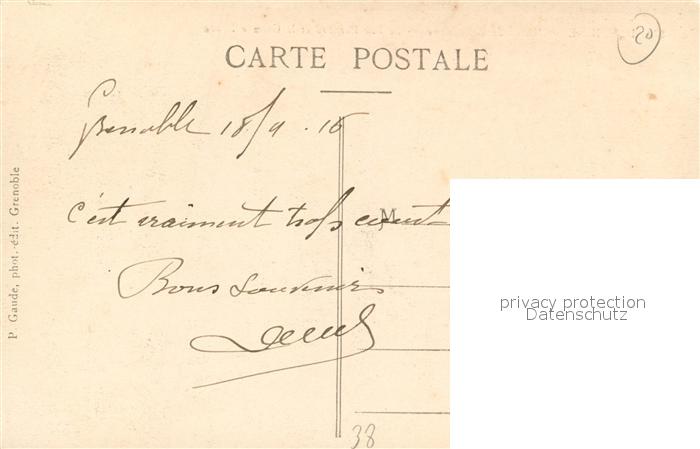 20
CARTE POSTALE
Grenoble 18/9.16
c'est vraiment trop court
M
Bons Souvenirs
P. Gaude, phot.-édit. Grenoble
privacy protection
Datenschutz
38